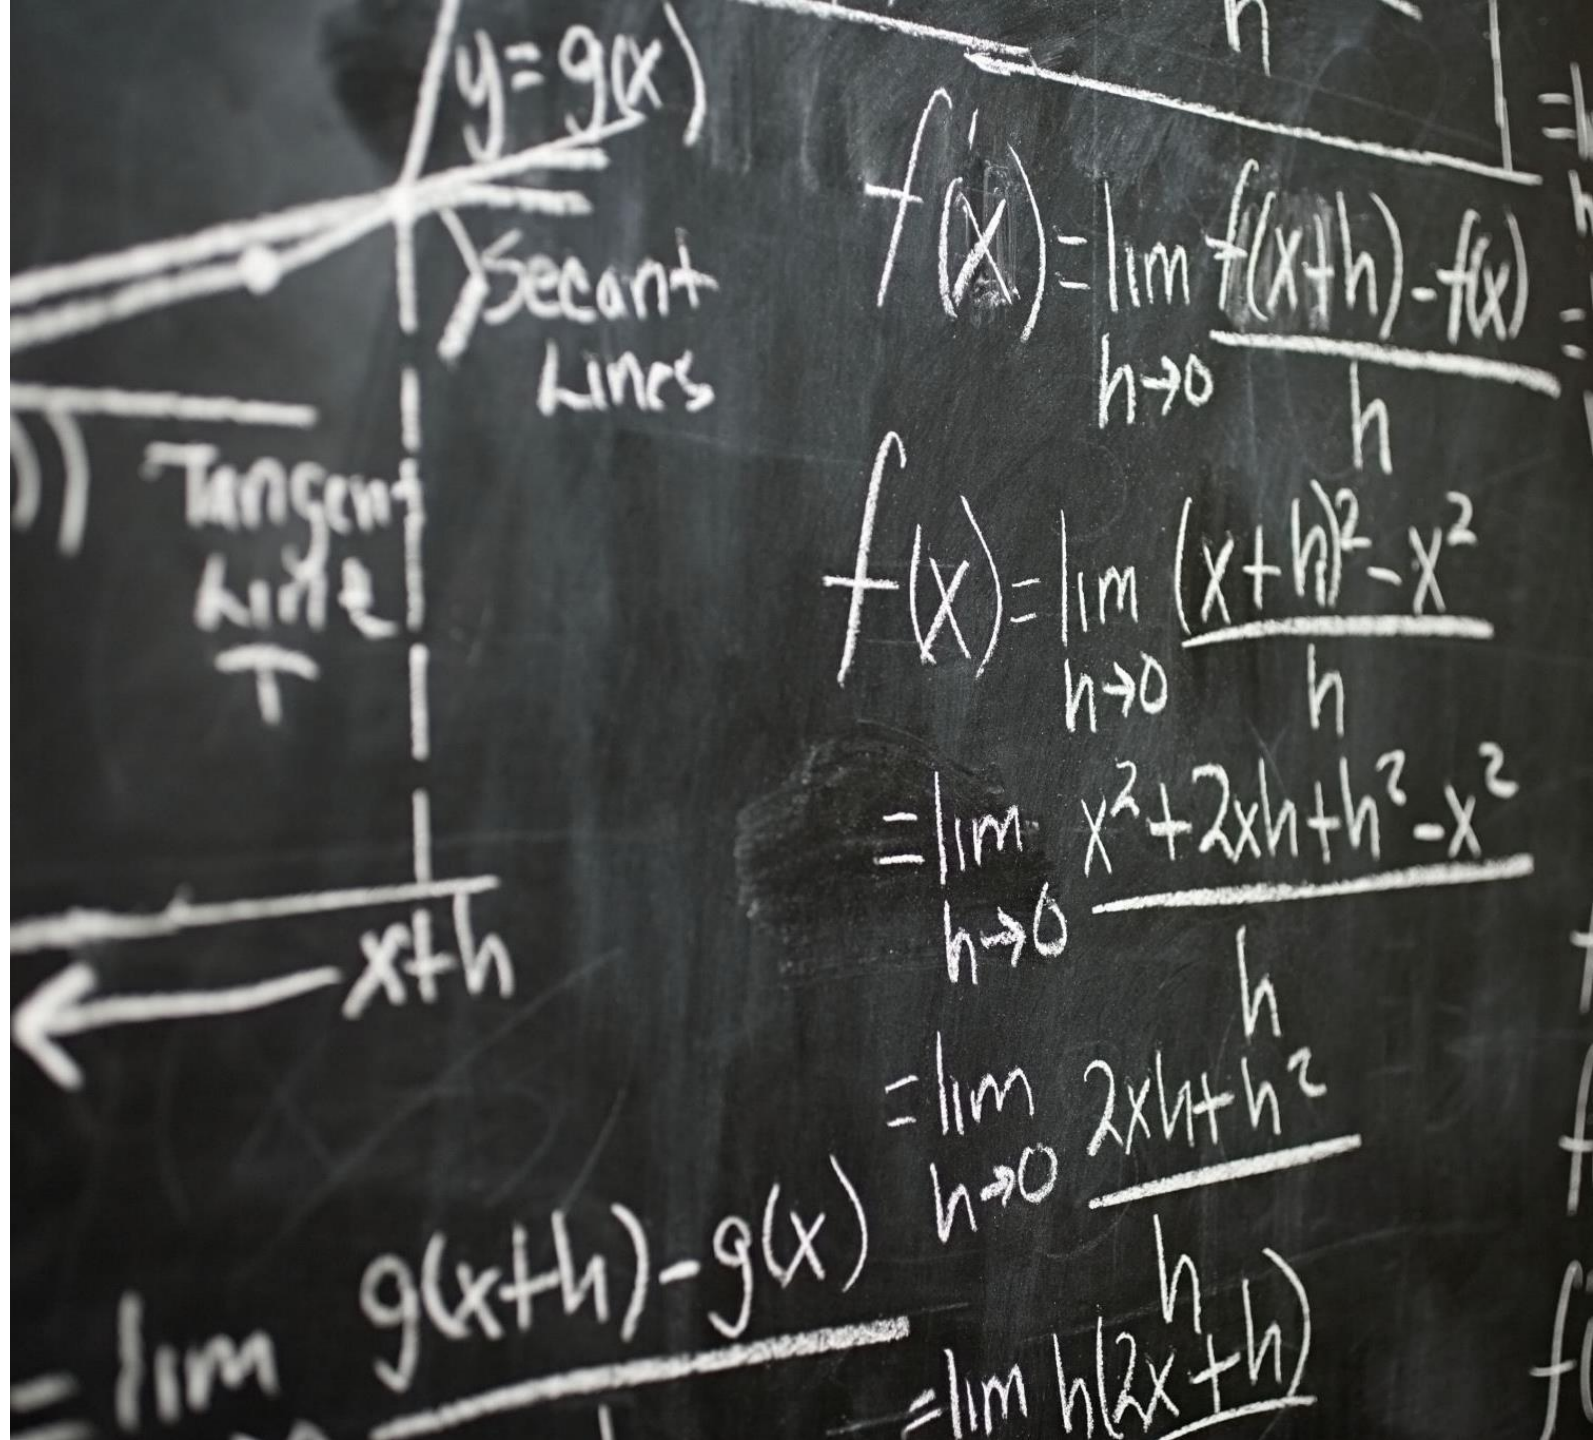 h
y=g(x)
Secant
Lines
Tangent
Line
T
x+h
= lim g(x+h)-g(x)
f'(x)=lim f(x+h)-f(x)
h→0 h
f(x)=lim (x+h)²-x²
h→0 h
=lim x²+2xh+h²-x²
h→0 h
=lim 2xh+h²
h→0 h
=lim h(2x+h)